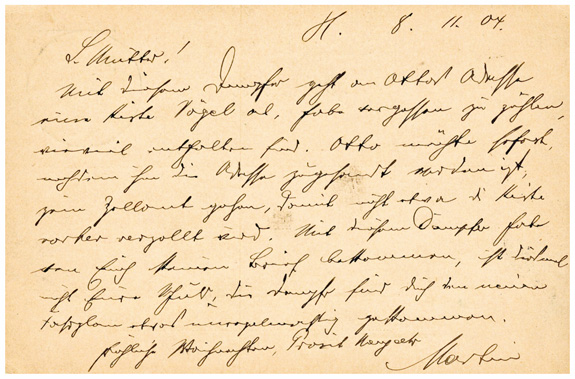 H. 8. 11. 04.
L. Mutter!
Mit diesem Dampfer geht an Ottos Adresse
eine Kiste Vögel ab, habe vergessen zu zählen,
wieviel enthalten sind. Otto möchte sofort,
nachdem ihm die Adresse zugesandt worden ist,
zum Zollamt gehen, damit nicht etwa die Kiste
vorher verzollt wird. Mit diesem Dampfer habe
von Euch keinen Brief bekommen, ist diesmal
nicht Eure Schuld, die Dampfer sind durch den neuen
Fahrplan etwas unregelmäßig gekommen.
Fröhliche Weihnachten, Prosit Neujahr
Martin